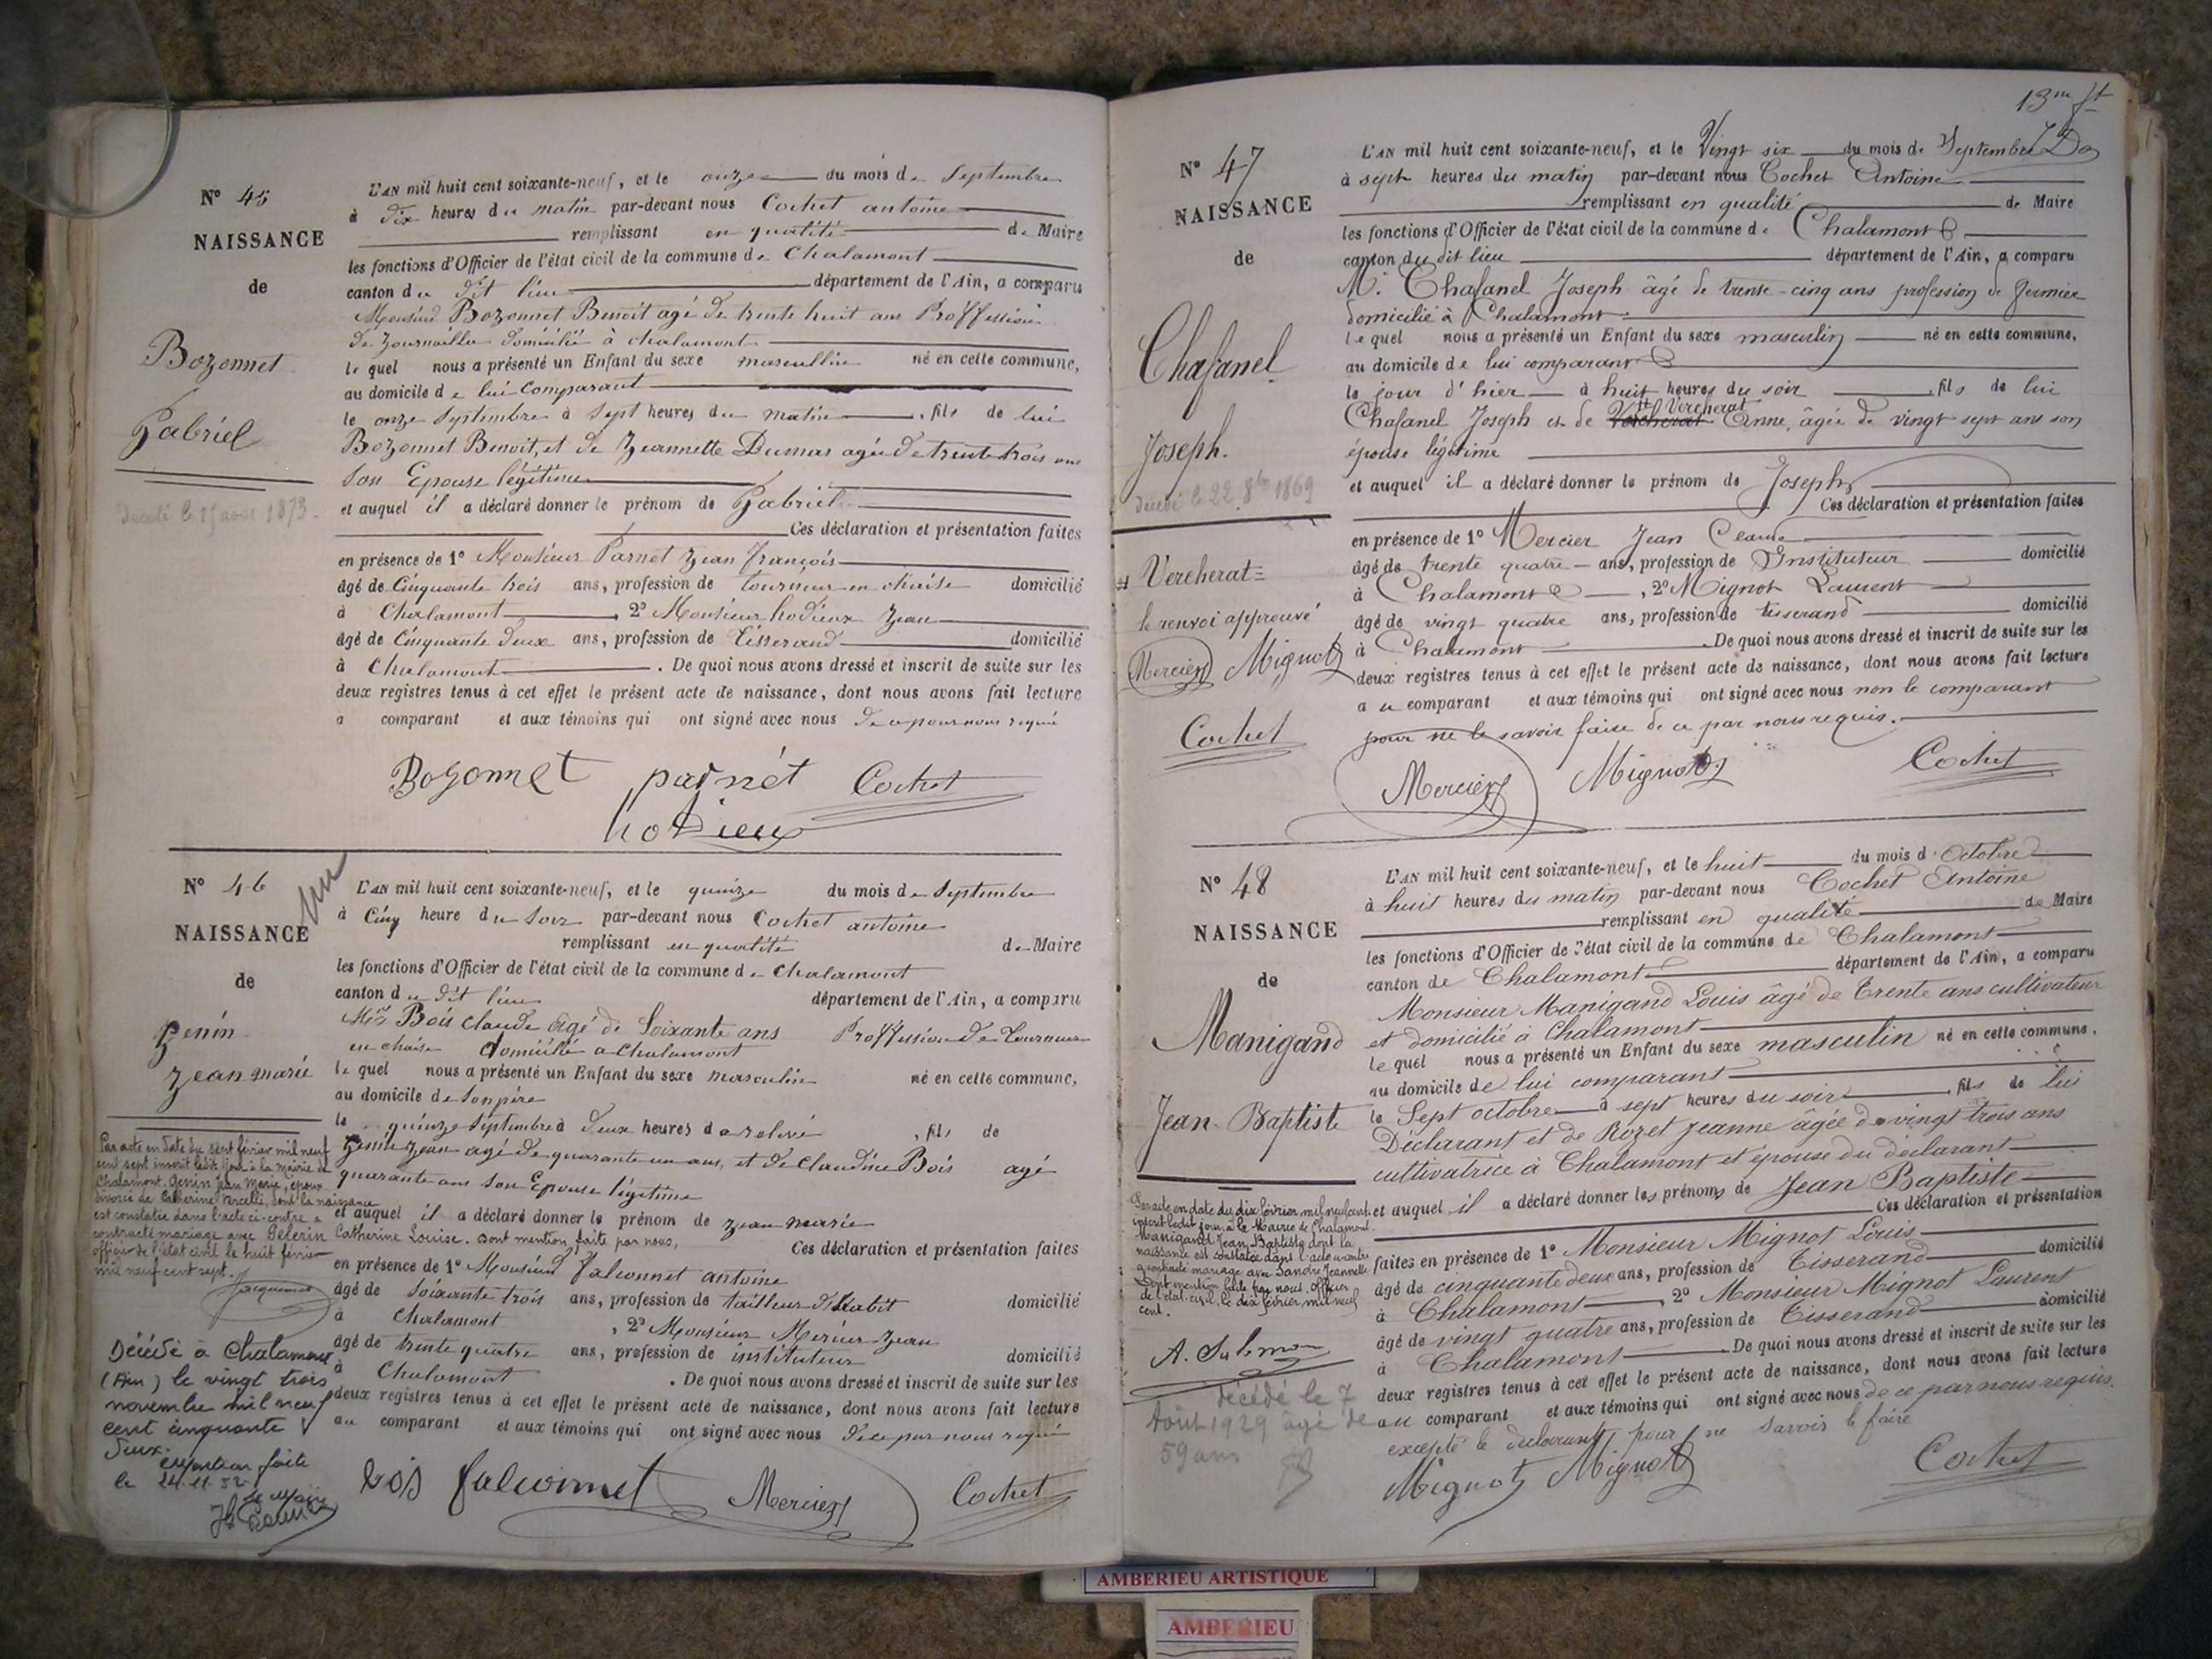 N° 45
NAISSANCE
de
Bozonnet
Gabriel
L'AN mil huit cent soixante-neuf, et le onze du mois de Septembre
à dix heures du matin par-devant nous Cochet antoine
remplissant en qualité de Maire
les fonctions d'Officier de l'état civil de la commune de Chalamont
canton du dit lieu département de l'Ain, a comparu
Monsieur Bozonnet Benoit agé de trente huit ans Proffession
de Journaillier Domicilié à chalamont
le quel nous a présenté un Enfant du sexe masculin né en cette commune,
au domicile de lui Comparant
le onze Septembre à Sept heures du matin, fils de lui
Bozonnet Benoit, et de Jeannette Dumas agée de trente trois ans
Son Epouse légitime
et auquel il a déclaré donner le prénom de Gabriel
Ces déclaration et présentation faites
en présence de 1° Monsieur Parnet Jean françois
âgé de Cinquante trois ans, profession de tourneur en chaise domicilié
à Chalamont, 2° Monsieur hodieux Jean
âgé de Cinquante deux ans, profession de Tisserand domicilié
à Chalamont. De quoi nous avons dressé et inscrit de suite sur les
deux registres tenus à cet effet le présent acte de naissance, dont nous avons fait lecture
a comparant et aux témoins qui ont signé avec nous
Bozonnet parnét Cochet
hodieux
N° 46
NAISSANCE
de
Genin
Jean marie
L'AN mil huit cent soixante-neuf, et le quinze du mois de Septembre
à Cinq heure du Soir par-devant nous Cochet antoine
remplissant en qualité de Maire
les fonctions d'Officier de l'état civil de la commune de Chalamont
canton du dit lieu département de l'Ain, a comparu
Bois claude âgé de Soixante ans Proffession de Tourneur
en chaise domicilié a Chalamont
le quel nous a présenté un Enfant du sexe masculin né en cette commune,
au domicile de Son père
le quinze Septembre à deux heures de relevé, fils de
Genin Jean agé de quarante un ans, et de Claudine Bois agé
quarante ans Son Epouse légitime
et auquel il a déclaré donner le prénom de Jean marie
Ces déclaration et présentation faites
en présence de 1° Monsieur falconnet antoine
âgé de Soixante trois ans, profession de tailleur d'habit domicilié
à Chalamont, 2° Monsieur Mercier Jean
âgé de trente quatre ans, profession de instituteur domicilié
à Chalamont. De quoi nous avons dressé et inscrit de suite sur les
deux registres tenus à cet effet le présent acte de naissance, dont nous avons fait lecture
au comparant et aux témoins qui ont signé avec nous de ce par nous requis
Par acte en date du sept février mil neuf
cent sept inscrit ledit jour à la mairie de
Chalamont. Genin Jean Marie, époux
divorcé de Catherine Vercelli, dont la naissance
est constatée dans l'acte ci-contre a
contracté mariage avec Pélerin Catherine Louise. Dont mention faite par nous,
officier de l'état civil le huit février
mil neuf cent sept.
Décédé à Chalamont
(Ain) le vingt trois
novembre mil neuf
cent cinquante
deux.
le 24.11.52
le Maire
bois falconnet Mercier Cochet
N° 47
NAISSANCE
de
Chafanel
Joseph.
décédé le 22 8bre 1869
# Vercherat =
le renvoi approuvé
Mercier Mignot
Cochet
L'AN mil huit cent soixante-neuf, et le Vingt six du mois de Septembre
à sept heures du matin par-devant nous Cochet Antoine
remplissant en qualité de Maire
les fonctions d'Officier de l'état civil de la commune de Chalamont
canton du dit lieu département de l'Ain, a comparu
M. Chafanel Joseph âgé de trente-cinq ans profession de fermier
domicilié à Chalamont
le quel nous a présenté un Enfant du sexe masculin né en cette commune,
au domicile de lui comparant
le jour d'hier à huit heures du soir fils de lui
Chafanel Joseph et de # Vercherat Anne, âgée de vingt sept ans son
épouse légitime
et auquel il a déclaré donner le prénom de Joseph
Ces déclaration et présentation faites
en présence de 1° Mercier Jean Claude
âgé de trente quatre ans, profession de Instituteur domicilié
à Chalamont, 2° Mignot Laurent
âgé de vingt quatre ans, profession de tisserand domicilié
à Chalamont. De quoi nous avons dressé et inscrit de suite sur les
deux registres tenus à cet effet le présent acte de naissance, dont nous avons fait lecture
au comparant et aux témoins qui ont signé avec nous non le comparant
pour ne le savoir faire de ce par nous requis.
Mercier Mignot Cochet
N° 48
NAISSANCE
de
Manigand
Jean-Baptiste
L'AN mil huit cent soixante-neuf, et le huit du mois d'Octobre
à huit heures du matin par-devant nous Cochet Antoine
remplissant en qualité de Maire
les fonctions d'Officier de l'état civil de la commune de Chalamont
canton de Chalamont département de l'Ain, a comparu
Monsieur Manigand Louis âgé de Trente ans cultivateur
et domicilié à Chalamont
le quel nous a présenté un Enfant du sexe masculin né en cette commune,
au domicile de lui comparant
le Sept octobre à sept heures du soir, fils de lui
Déclarant et de Rozet Jeanne âgée de vingt trois ans
cultivatrice à Chalamont et épouse du déclarant
et auquel il a déclaré donner les prénoms de Jean Baptiste
Ces déclaration et présentation
faites en présence de 1° Monsieur Mignot Louis
âgé de cinquante deux ans, profession de Tisserand domicilié
à Chalamont, 2° Monsieur Mignot Laurent
âgé de vingt quatre ans, profession de Tisserand domicilié
à Chalamont. De quoi nous avons dressé et inscrit de suite sur les
deux registres tenus à cet effet le présent acte de naissance, dont nous avons fait lecture
au comparant et aux témoins qui ont signé avec nous de ce par nous requis.
excepté le déclarant pour ne savoir le faire
Par acte en date du dix février mil neuf cent
inscrit ledit jour, à la Mairie de Chalamont.
Manigand Jean Baptiste dont la
naissance est constatée dans l'acte ci-contre
a contracté mariage avec Sandre Jeannette
Dont mention faite par nous, officier
de l'état-civil, le dix février mil neuf
cent.
décédé le 7
Août 1929 âgé de
59 ans
Mignot Mignot Cochet
AMBERIEU ARTISTIQUE
AMBERIEU